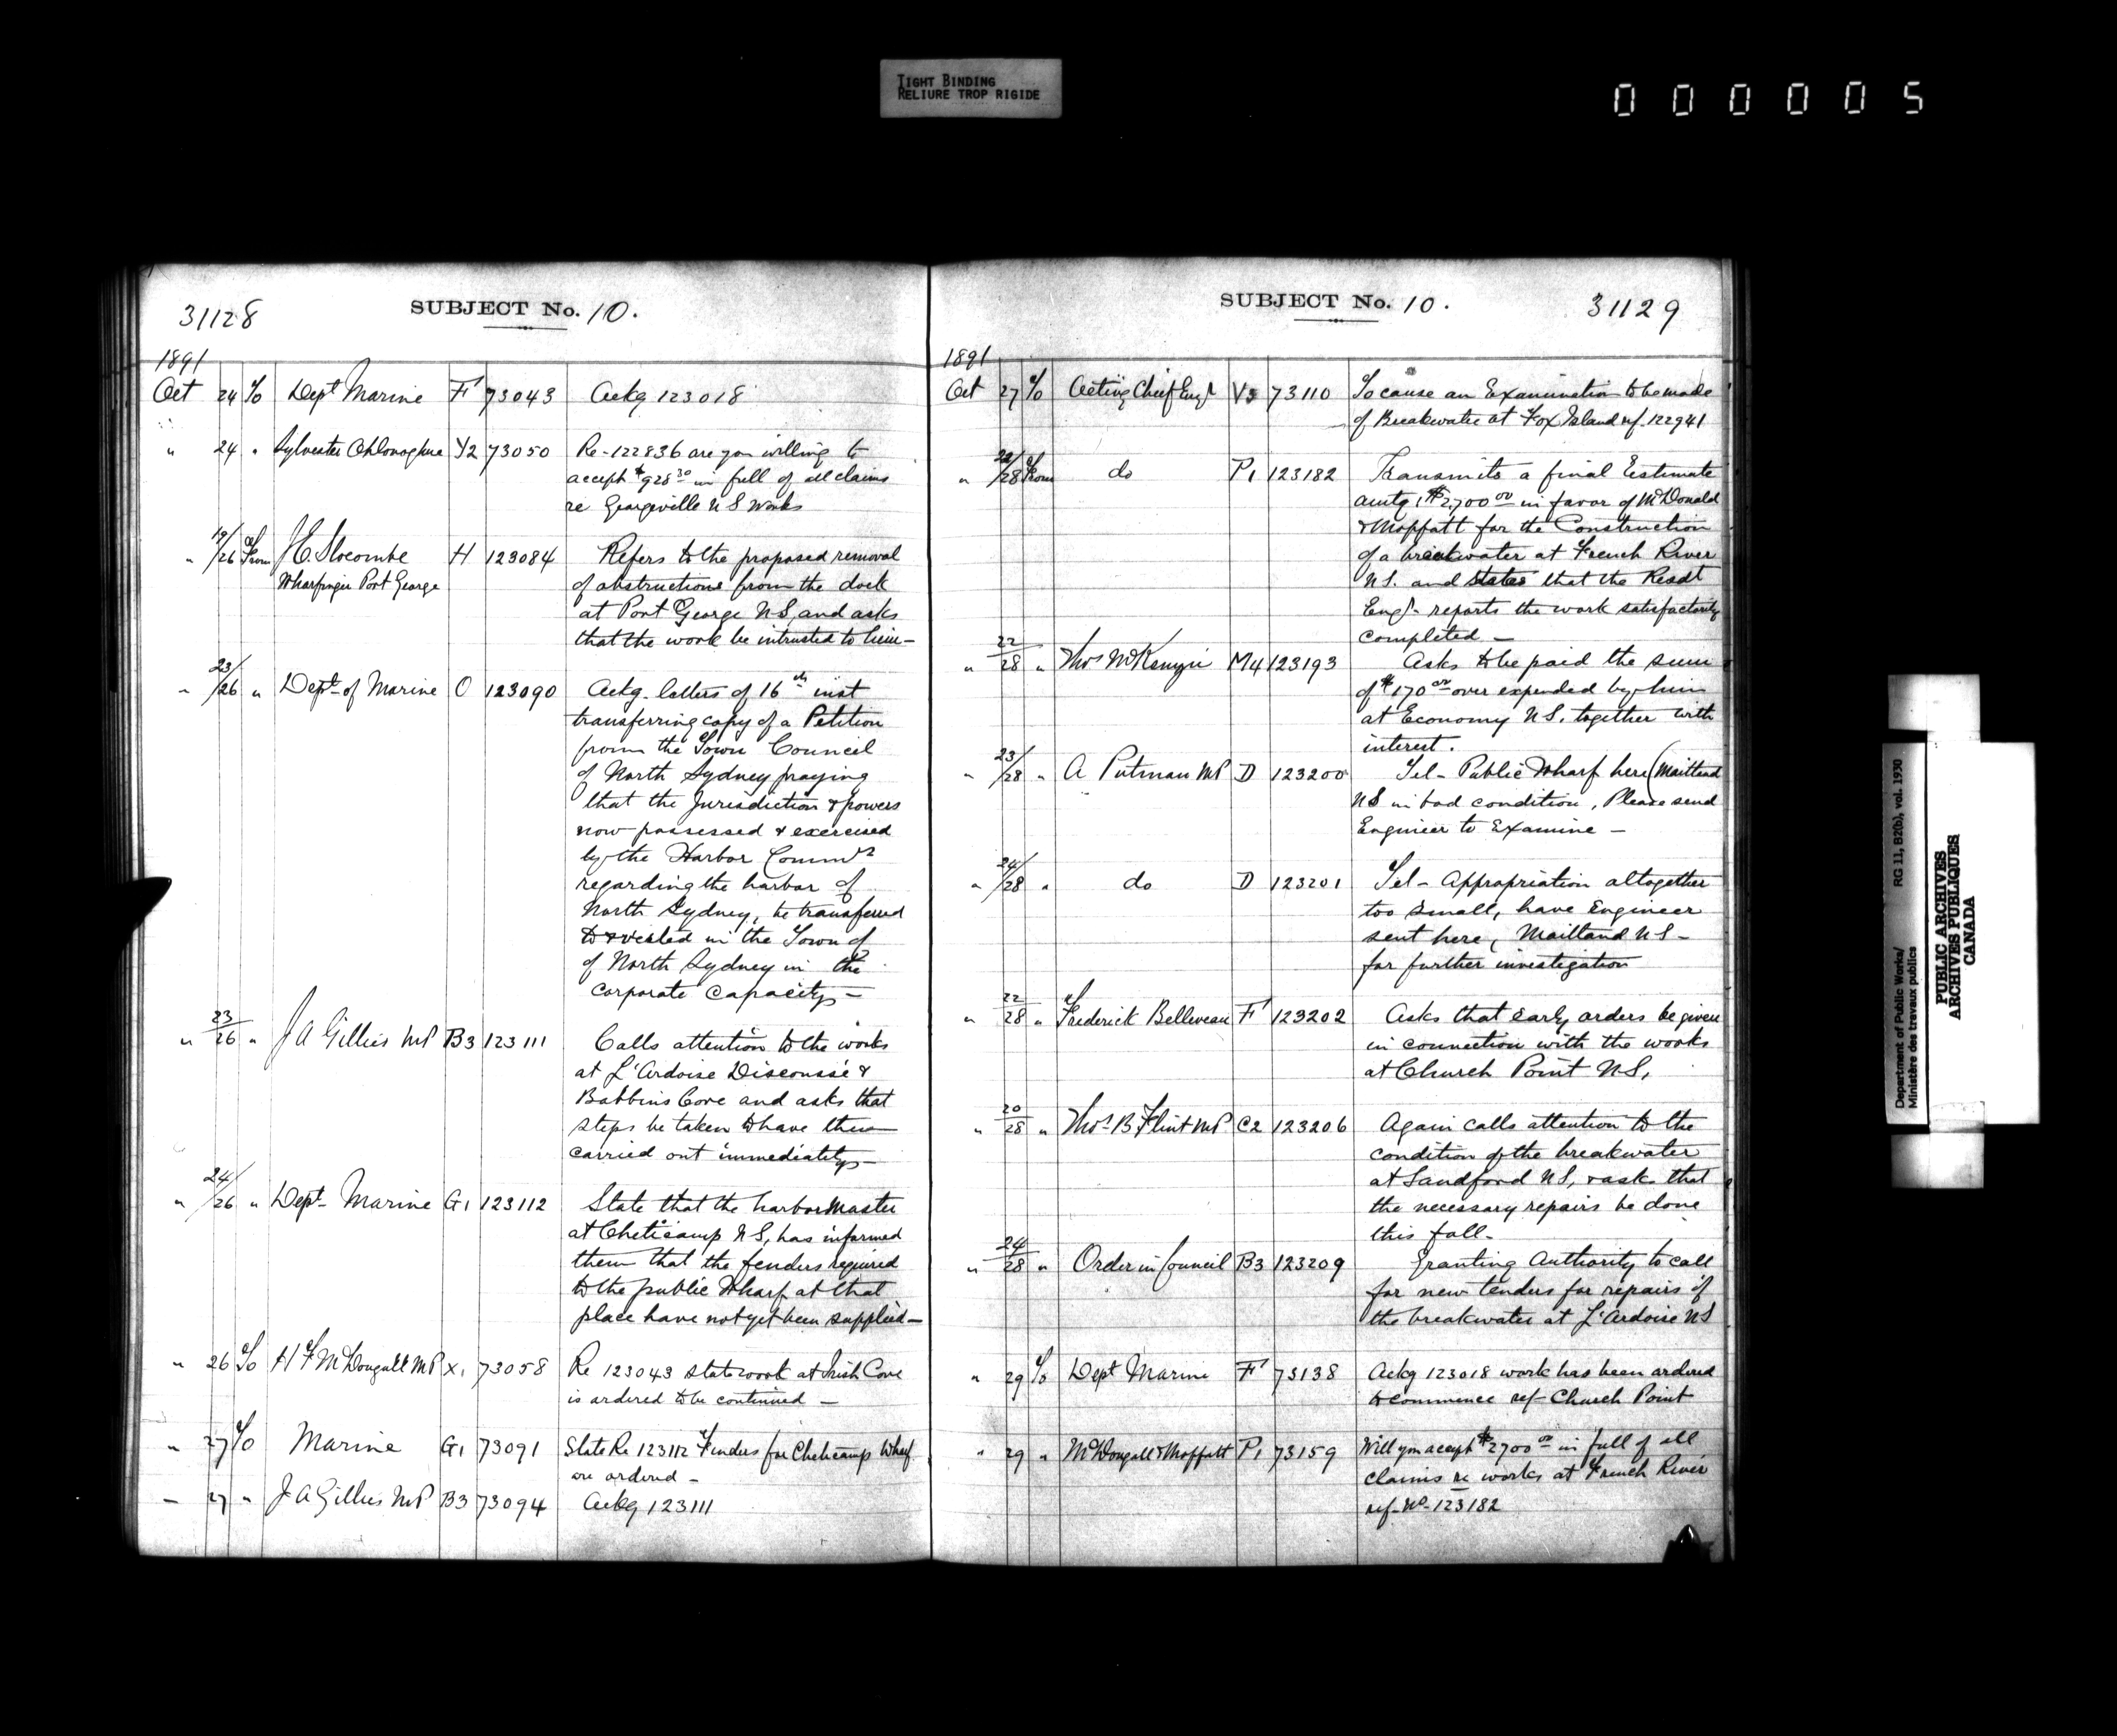 TIGHT BINDING
RELIURE TROP RIGIDE
000005
31128
SUBJECT No. 10.
1891
Oct 24 To Dept Marine F' 73043 Ackg 123018
" 24 " Sylvester O'Donoghue Y2 73050 Re 122836 are you willing to
accept $928 30 in full of all claims
re Georgeville N S Works
" 19/26 From J.E. Slocombe H 123084 Refers to the proposed removal
Wharfinger Port George of obstructions from the dock
at Port George N.S, and asks
that the work be intrusted to him—
" 23/26 " Dept of Marine O 123090 Ackg. letters of 16th inst
transferring copy of a Petition
from the Town Council
of North Sydney praying
that the Jurisdiction & powers
now possessed & exercised
by the Harbor Commrs
regarding the harbor of
North Sydney, be transferred
to & vested in the Town of
of North Sydney in the
corporate capacity—
" 23/26 " J A Gillies MP B3 123111 Calls attention to the works
at L'Ardoise Discousse &
Babbins Cove and asks that
steps be taken to have them
carried out immediately—
" 24/26 " Dept Marine G1 123112 State that the harbor master
at Cheticamp N S, has informed
them that the fenders required
to the public Wharf at that
place have not yet been supplied—
" 26 To H F McDougall MP X1 73058 Re 123043 state work at Irish Cove
is ordered to be continued —
" 27 To Marine G1 73091 State Re 123112 Fenders for Cheticamp Wharf
are ordered —
" 27 " J A Gillies MP B3 73094 Ackg 123111
SUBJECT No. 10.
31129
1891
Oct 27 To Acting Chief Engr V3 73110 To cause an Examination to be made
of Breakwater at Fox Island ref. 122941
" 22/28 From do P1 123182 Transmits a final Estimate
amtg $2,700 00 in favor of McDonald
& Moffatt for the Construction
of a breakwater at French River
N.S. and states that the Resdt
Engr reports the work satisfactorily
completed —
" 22/28 " Thos McKenzie M4 123193 Asks to be paid the sum
of $170 00 over expended by him
at Economy N.S. together with
interest.
" 23/28 " A Putman MP D 123200 Tel — Public Wharf here (Maitland
N S in bad condition, Please send
Engineer to Examine —
" 24/28 " do D 123201 Tel — Appropriation altogether
too small, have Engineer
sent here, Maitland N S —
for further investigation
" 22/28 " Frederick Belliveau F' 123202 Asks that early orders be given
in connection with the works
at Church Point N.S,
" 20/28 " Thos B Flint MP C2 123206 Again calls attention to the
condition of the breakwater
at Sandford N S, & ask that
the necessary repairs be done
this fall.
" 24/28 " Order in Council B3 123209 Granting Authority to call
for new tenders for repairs of
the breakwater at L'Ardoise N S
" 29 To Dept Marine F' 73138 Ackg 123018 work has been ordered
to commence ref Church Point
" 29 " McDougall & Moffatt P1 73159 Will you accept $2700 00 in full of all
claims re works at French River
ref. No. 123182
Department of Public Works/ RG 11, B2(b), vol. 1930
Ministère des travaux publics
PUBLIC ARCHIVES
ARCHIVES PUBLIQUES
CANADA